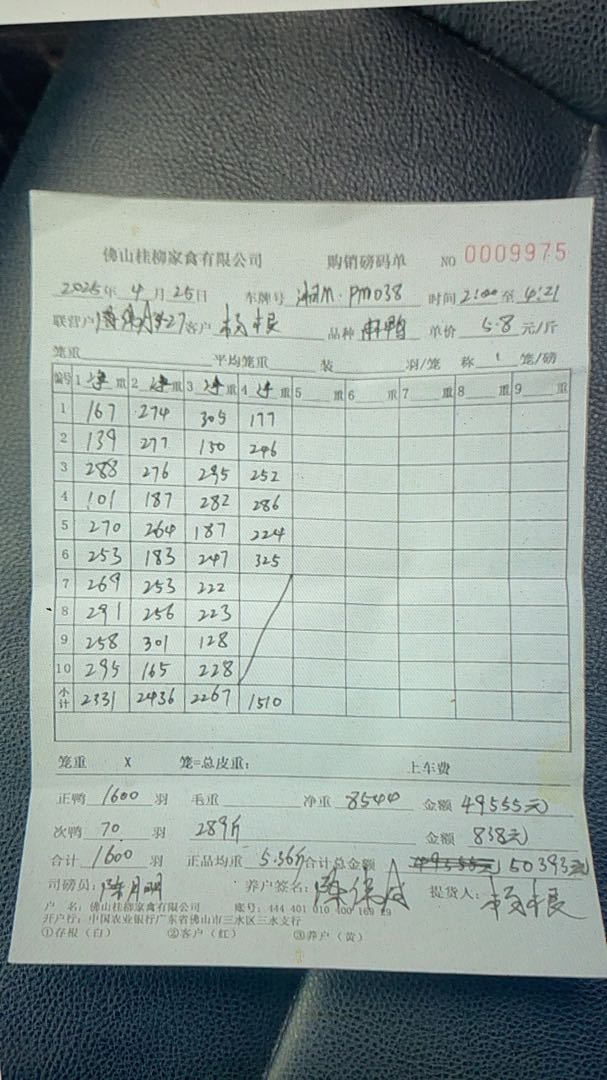 佛山桂柳家禽有限公司 购销磅码单 NO 0009975
2025年 4 月 25日 车牌号 湘M·PM038 时间 2:00 至 4:21
联营户 27 客户 杨根 品种 麻鸭 单价 5.8 元/斤
笼重 平均笼重 装 羽/笼 称 1 笼/磅
编号 1 净 重 2 净 重 3 净 重 4 净 重 5 重 6 重 7 重 8 重 9 重
1 167 274 305 177
2 139 277 150 246
3 288 276 295 252
4 101 187 282 286
5 270 264 187 224
6 253 183 247 325
7 269 253 222
8 291 256 223
9 258 301 128
10 295 165 228
小计 2331 2436 2267 1510
笼重 X 笼=总皮重: 上车费
正鸭 1600 羽 毛重 净重 8544 金额 49555元
次鸭 70 羽 289斤 金额 838元
合计 1600 羽 正品均重 5.36斤 合计总金额 49555元 50393元
司磅员: 陈月明 养户签名: 提货人: 杨根
户 名: 佛山桂柳家禽有限公司 账号: 444 401 010 400 169 29
开户行: 中国农业银行广东省佛山市三水区三水支行
①存根（白） ②客户（红） ③养户（黄）